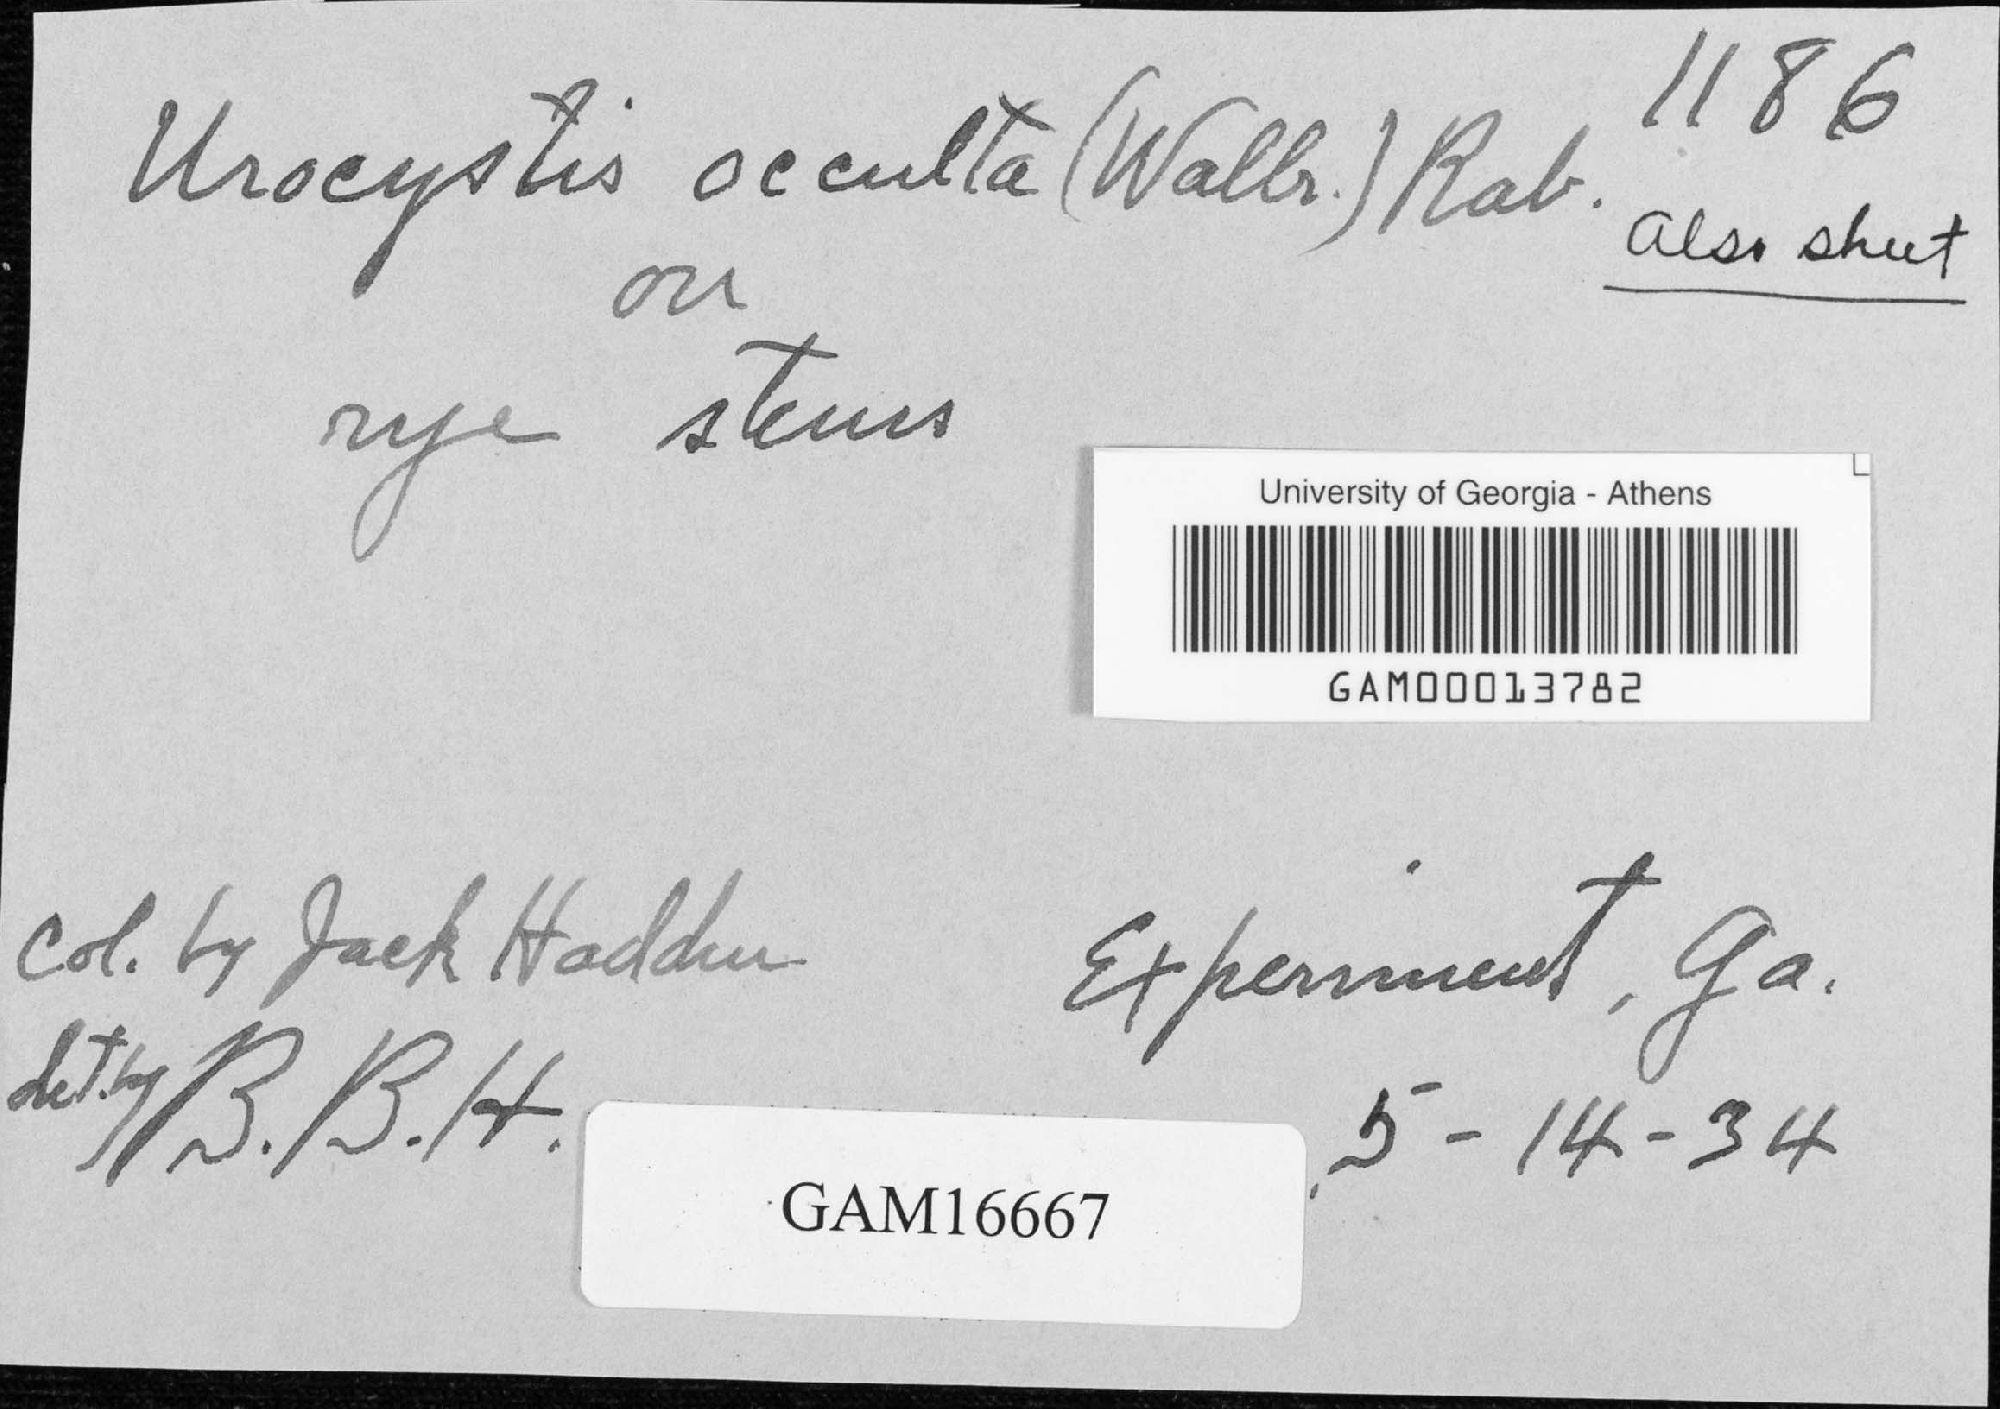 1186
Urocystis occulta (Wallr.) Rab.
also sheet
on
rye stems
University of Georgia - Athens
GAM00013782
col. by Jack Hadden
Experiment, Ga.
det. by B. B. H.
5-14-34
GAM16667